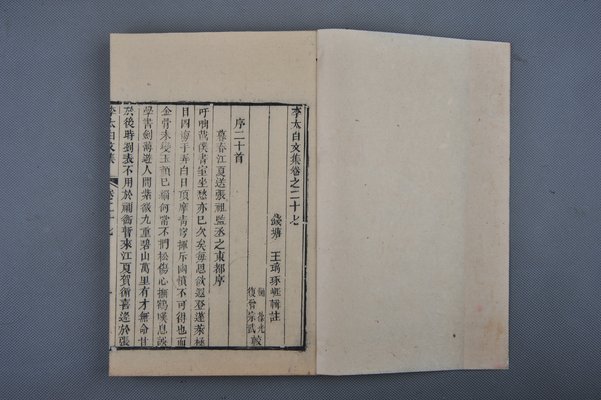 李太白文集卷之二十七
錢塘 王琦琢崖輯註
葆光
復曾宗武
較
序二十首
暮春江夏送張祖監丞之東都序
吁咄哉僕書室坐愁亦已久矣每思欲遐登蓬萊極
目四海手弄白日頂摩青穹揮斥幽憤不可得也而
金骨未變玉顏已緇何常不捫松傷心撫鶴嘆息誤
學書劍薄遊人間紫微九重碧山萬里有才無命甘
於後時劉表不用於禰衡暫來江夏賀循喜逢於張
李太白文集 卷二十七